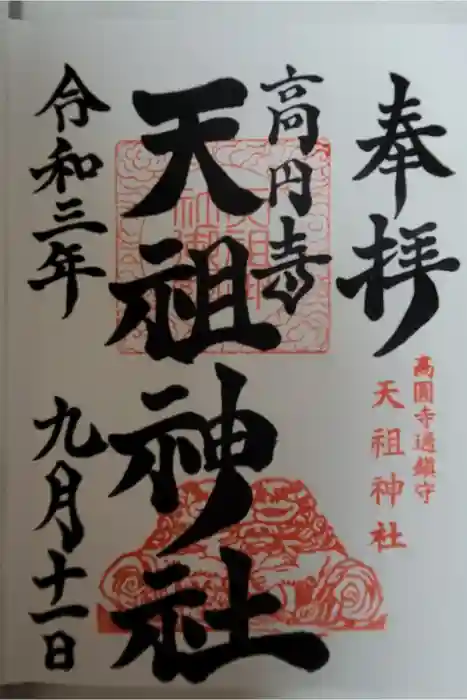 奉拝
高圓寺邊鎮守
天祖神社
高円寺
天祖神社
令和三年
九月十一日